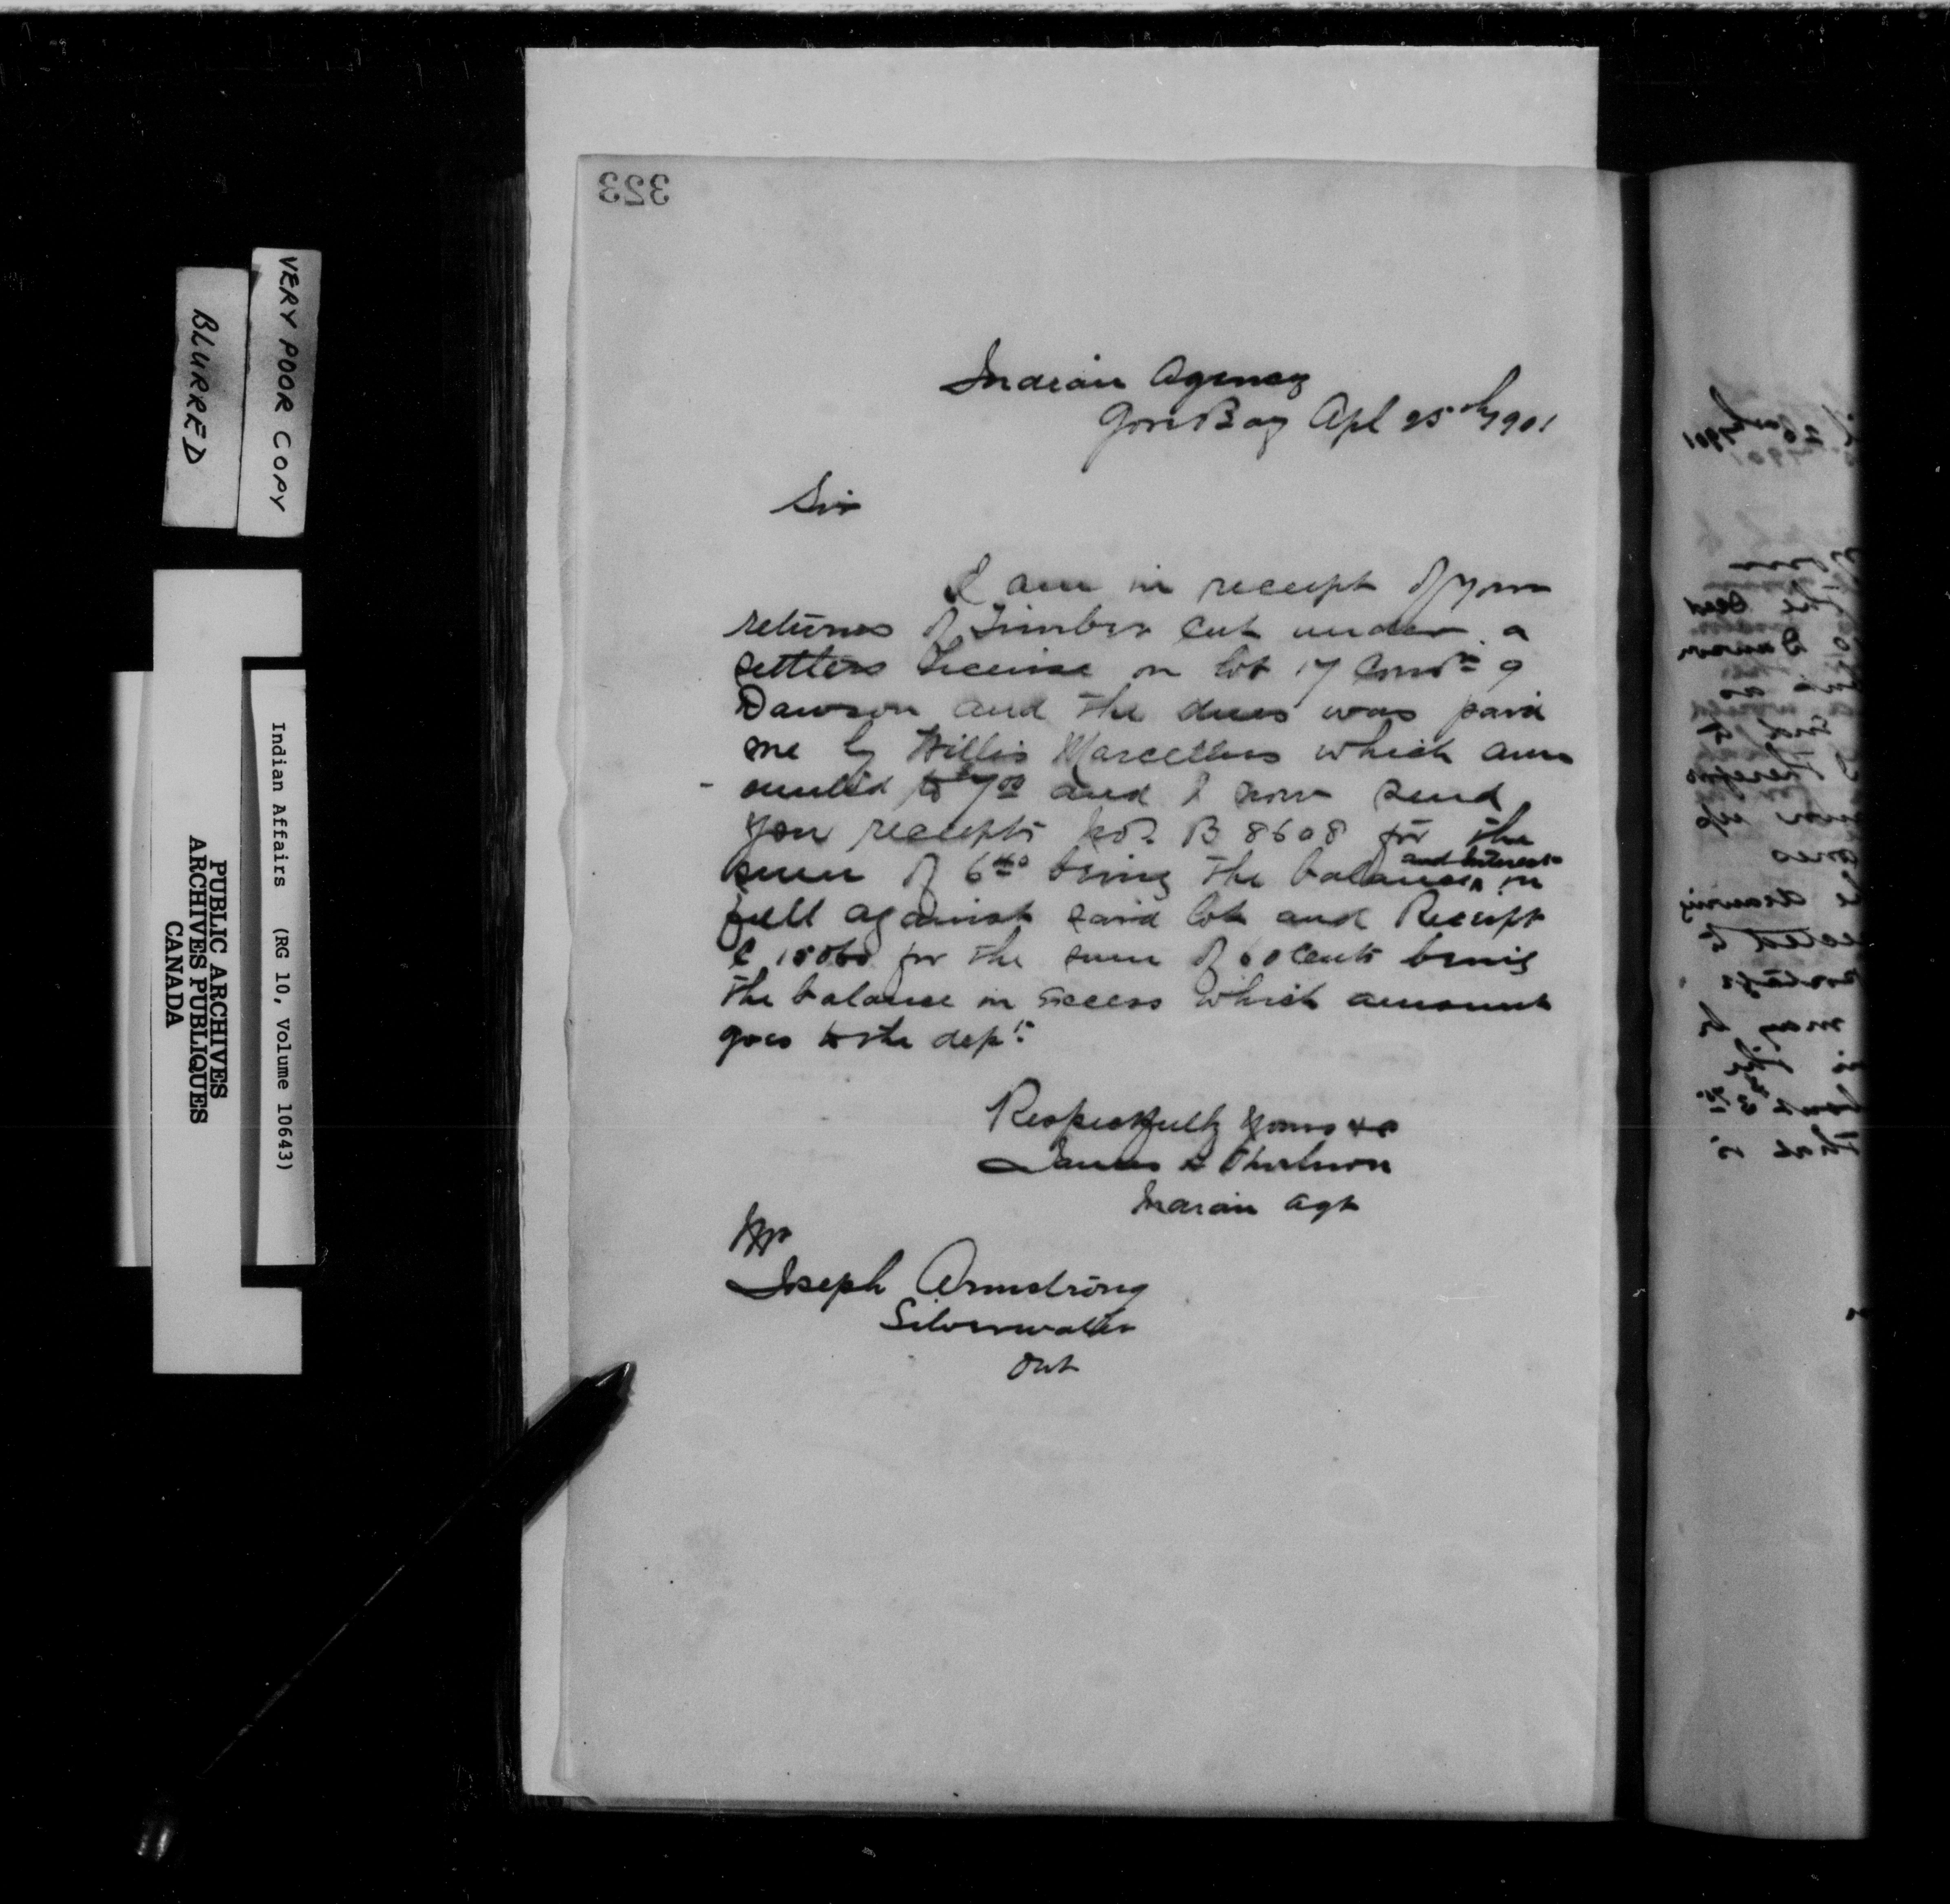 323
Indian Agency
Gore Bay Apl 25th 1901
Sir
I am in receipt of your
returns of Timber cut under a
settlers License on lot 17 Conn 9
Dawson and the dues was paid
me by Willis Marcellus which am
- ounted to 7 00 and I now send
you receipts No. B 8608 for the
sum of 6 40 being the balance and Interest in
full against said lot and Receipt
C for the sum of 60 cents being
the balance in excess which amount
goes to the dept.
Respectfully yours
James
Indian Agt
Mr
Joseph Armstrong
Silverwater
Ont
VERY POOR COPY
BLURRED
Indian Affairs (RG 10, Volume 10643)
PUBLIC ARCHIVES
ARCHIVES PUBLIQUES
CANADA